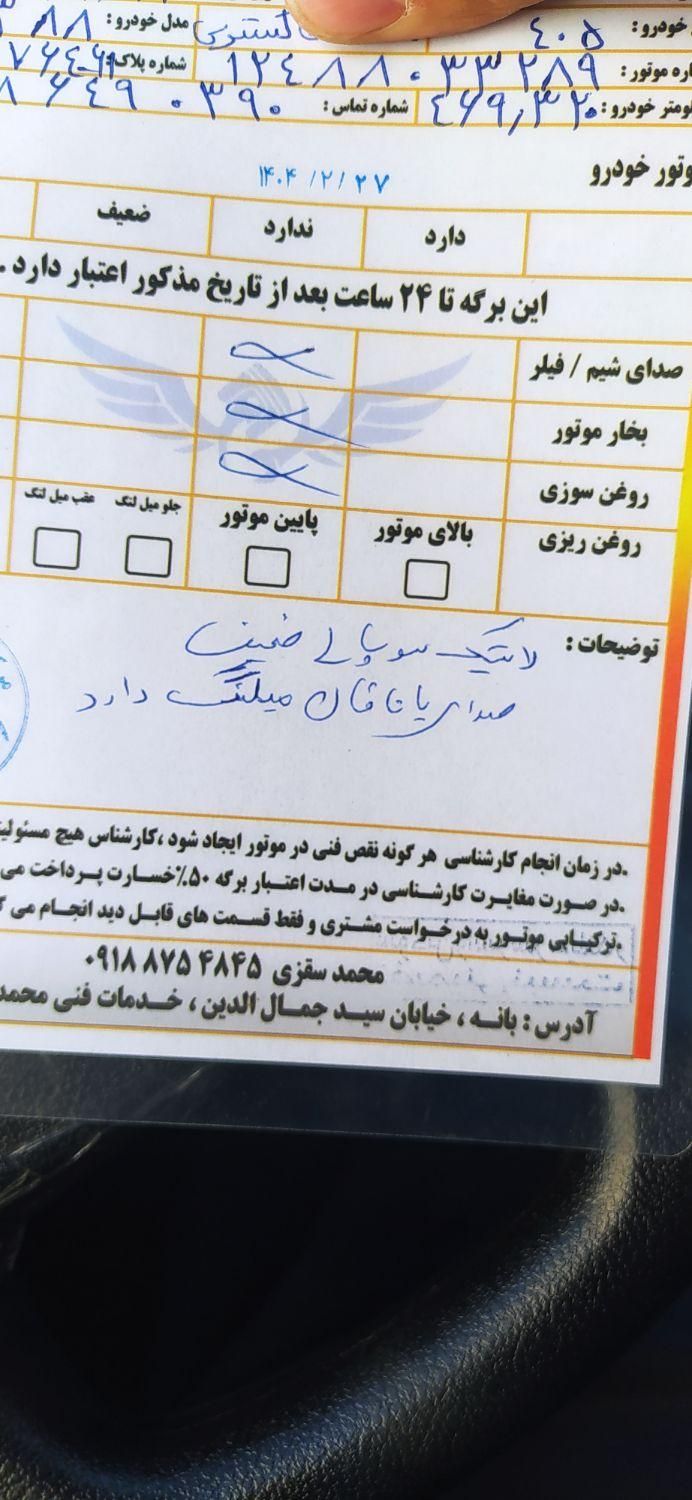 خودرو : ۴۰۵ مدل خودرو : ۸۸
موتور : ۱۲۴۸۸۰۳۳۲۸۹ شماره پلاک :
خودرو : ۴۶۹,۳۲۰ شماره تماس : ۰۳۹۰
موتور خودرو
۱۴۰۴/۲/۲۷
دارد ندارد ضعیف
این برگه تا ۲۴ ساعت بعد از تاریخ مذکور اعتبار دارد .
صدای شیم / فیلر
بخار موتور
روغن سوزی
روغن ریزی بالای موتور پایین موتور جلو میل لنگ عقب میل لنگ
توضیحات : لاستیک سوپاپ ضعیف
صدای یاتاقان میلنگ دارد
.در زمان انجام کارشناسی هر گونه نقص فنی در موتور ایجاد شود ،کارشناس هیچ
.در صورت مغایرت کارشناسی در مدت اعتبار برگه ۵۰٪خسارت پرداخت می
.ترکیابی موتور به درخواست مشتری و فقط قسمت های قابل دید انجام می
محمد سقزی ۰۹۱۸ ۸۷۵ ۴۸۴۵
آدرس : بانه ، خیابان سید جمال الدین ، خدمات فنی محمد